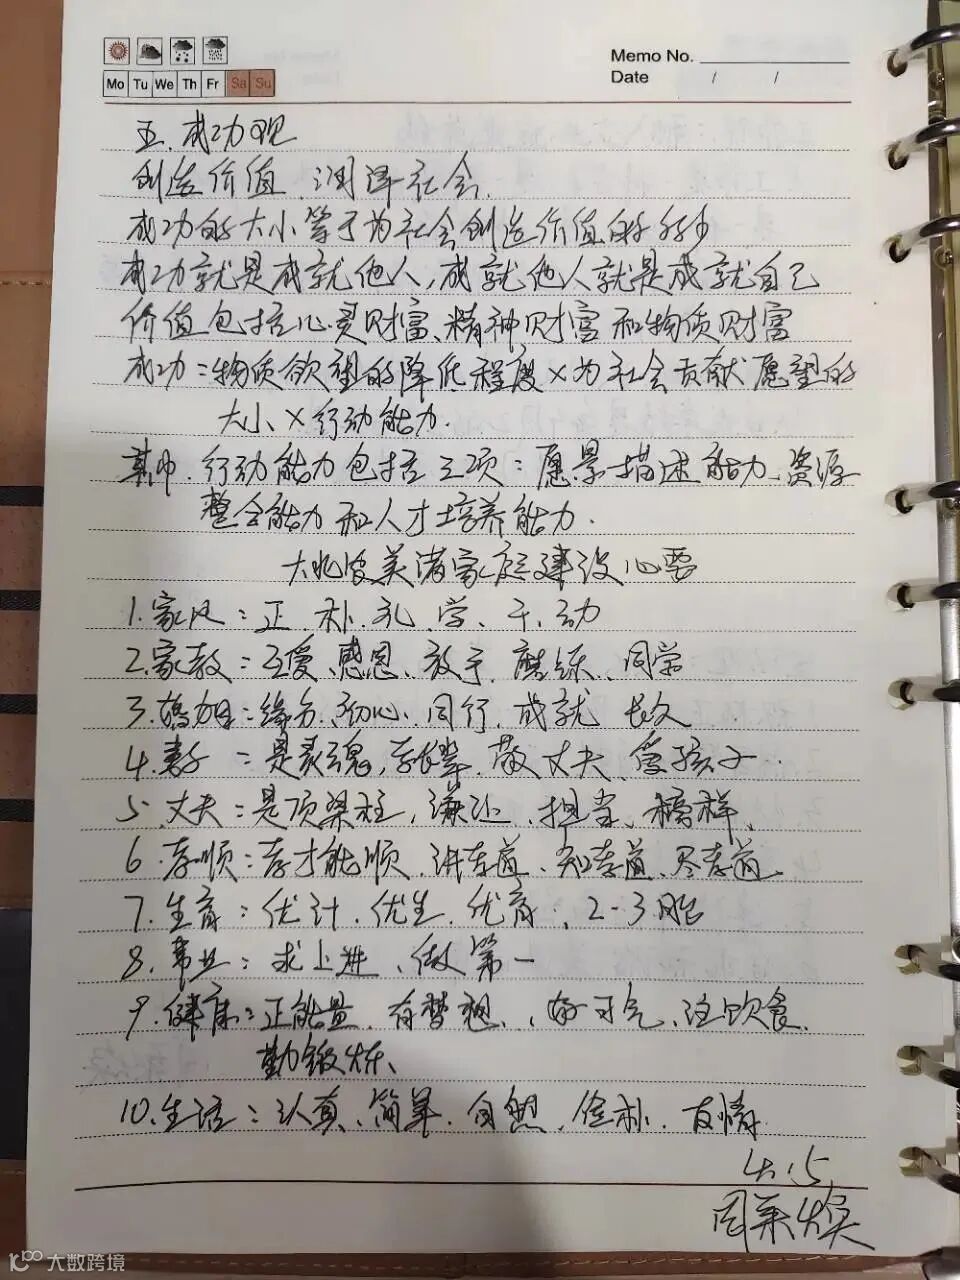 Memo No.
Mo Tu We Th Fr Sa Su
Date / /
五.成功观
创造价值 润泽社会.
成功的大小等于为社会创造价值的多少
成功就是成就他人,成就他人就是成就自己
价值包括心灵财富、精神财富和物质财富
成功:物质欲望的降低程度×为社会贡献愿望的
大小×行动能力.
其中.行动能力包括三项:愿景描述能力、资源
整合能力和人才培养能力.
家庭建设心要
1.家风:正.朴.礼.学.干.劲
2.家教:互爱.感恩.放手.磨练.同学
3.婚姻:缘分、初心、同行.成就 长久
4.妻子:是灵魂,孝长辈.敬丈夫.爱孩子.
5.丈夫:是顶梁柱,谦让.担当、榜样.
6.孝顺:孝才能顺.讲孝道、知孝道、尽孝道.
7.生育:优计.优生.优育.2-3胎
8.事业:求上进、做第一
9.健康:正能量.有梦想、好习气、注饮食.
勤锻炼、
10.生活:认真、简单.自然.俭朴.有情
4.15.
大数跨境